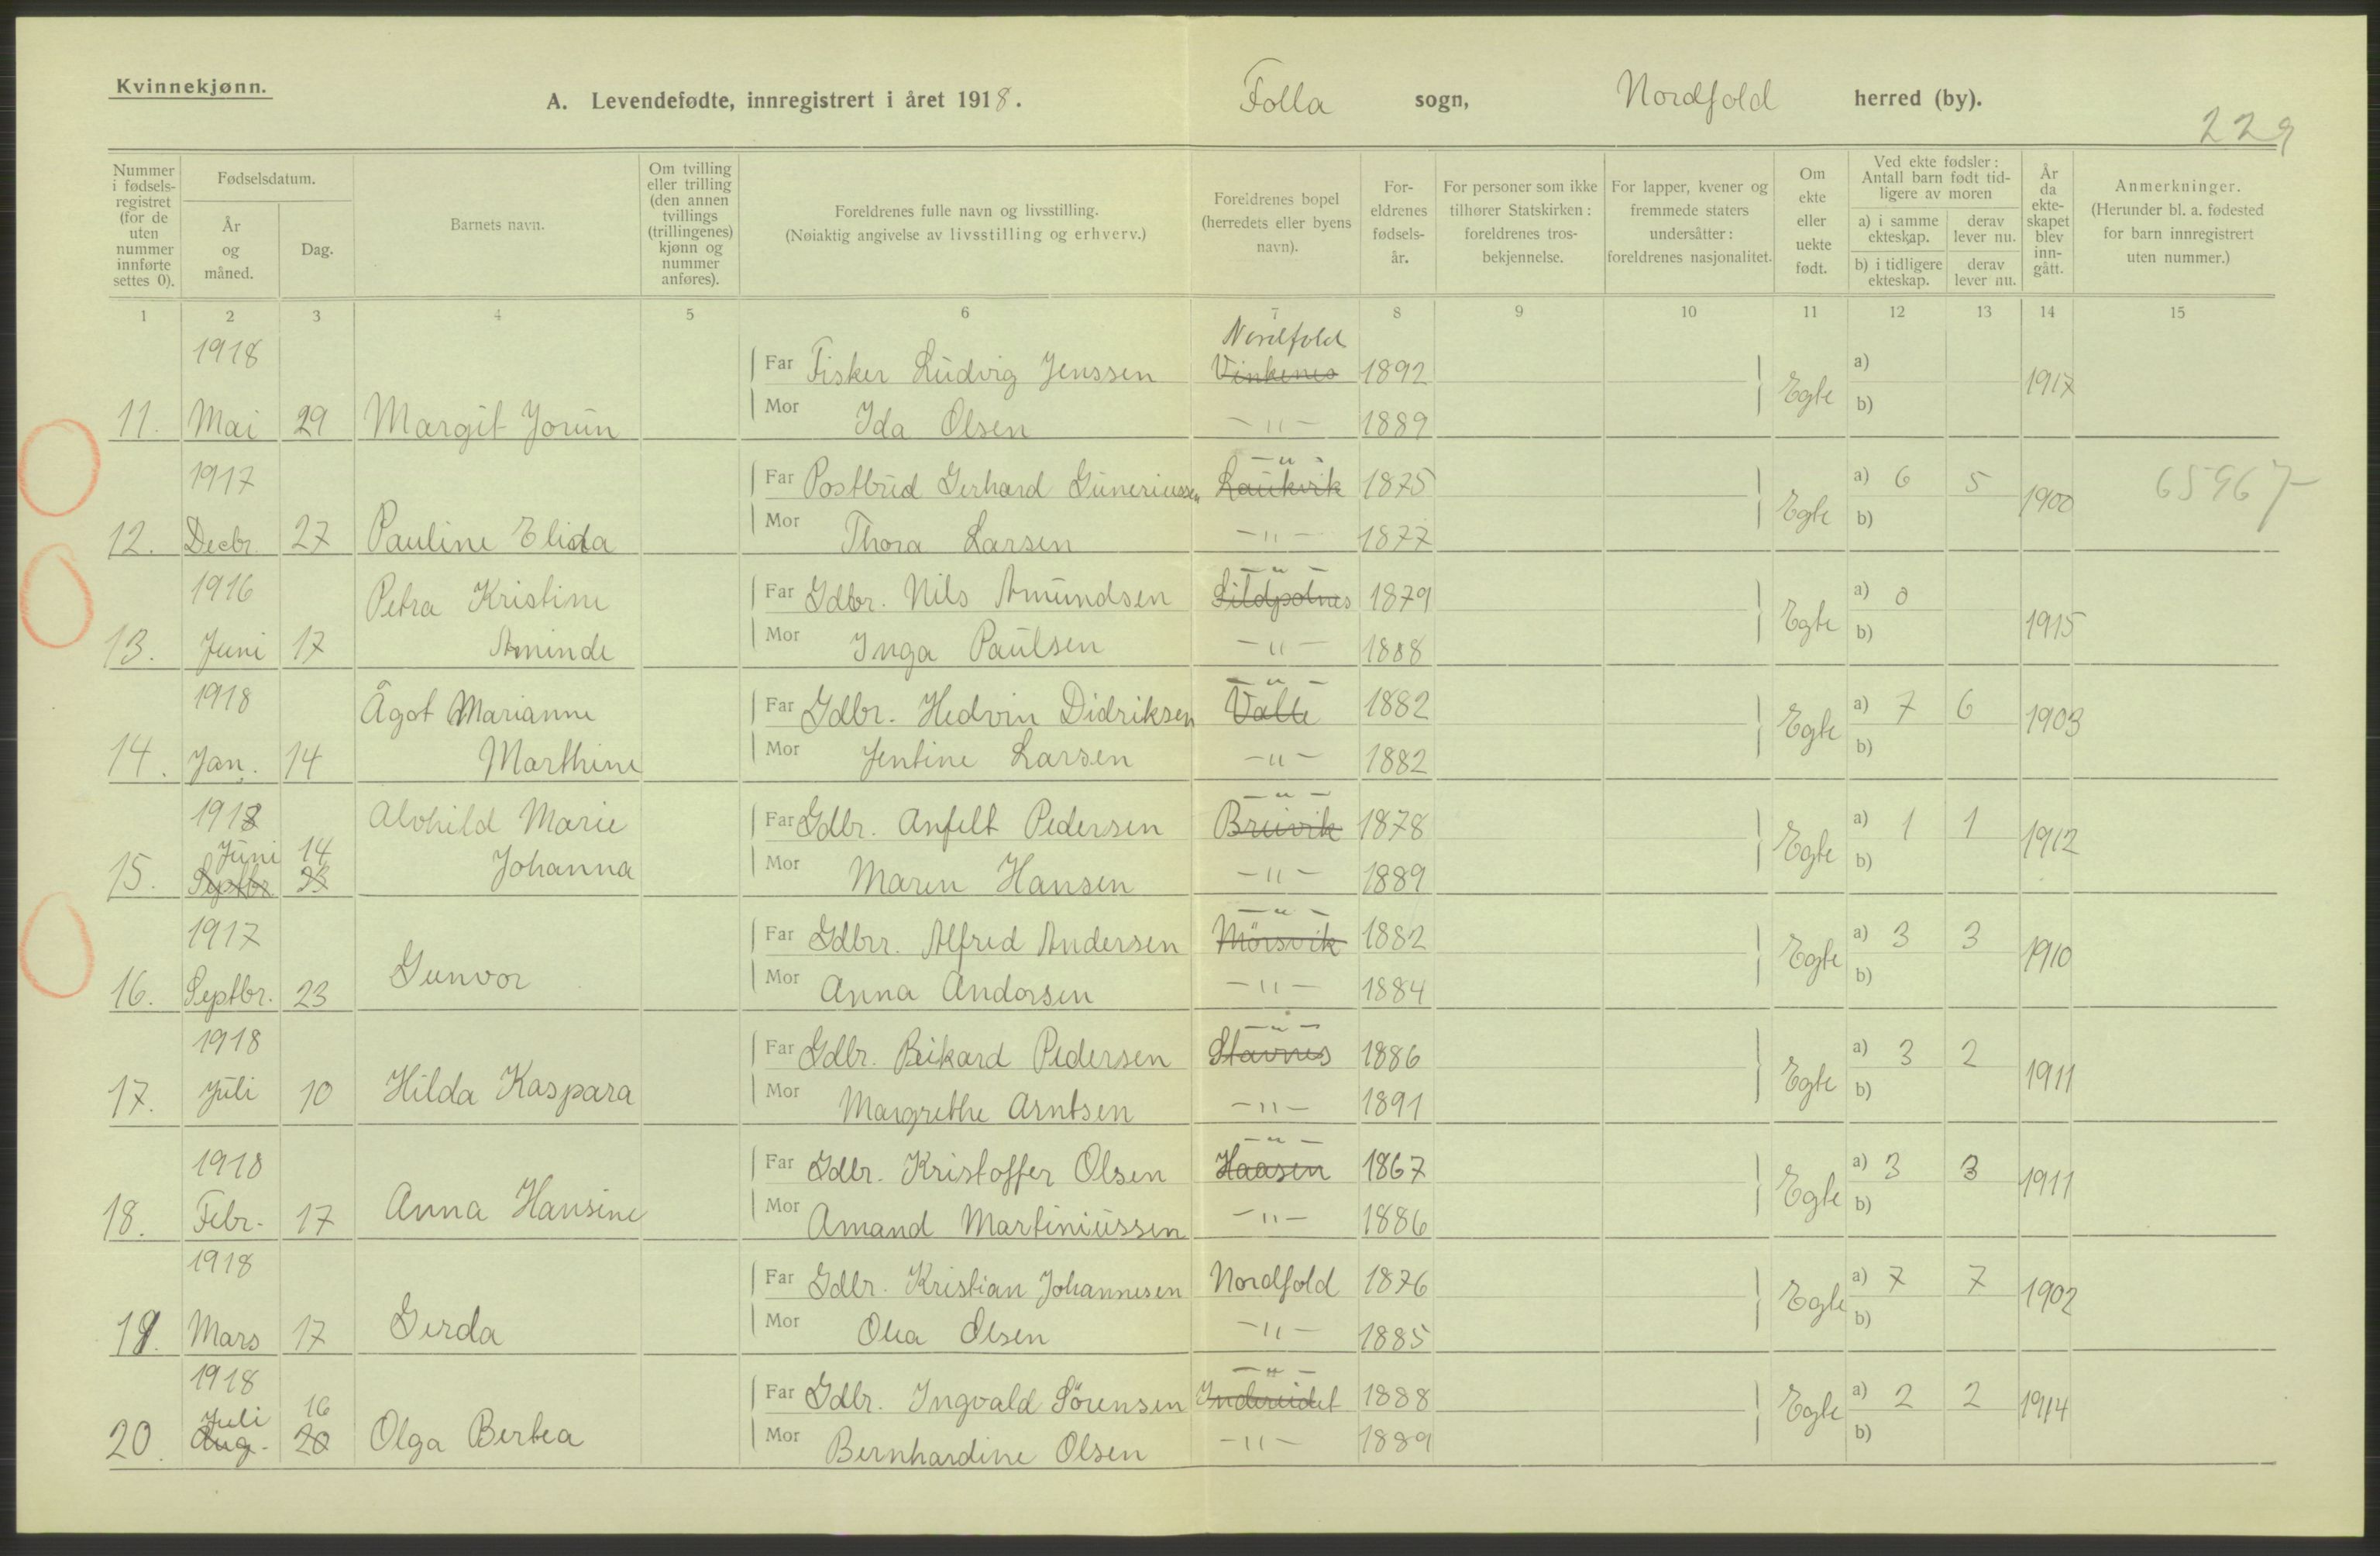 Kvinnekjønn.
A. Levendefødte, innregistrert i året 1918. Folla sogn, Nordfold herred (by).
229
Nummer i fødsels-registret (for de uten nummer innførte settes 0).
Fødselsdatum.
År og måned.
Dag.
Barnets navn.
Om tvilling eller trilling (den annen tvillings (trillingenes) kjønn og nummer anføres).
Foreldrenes fulle navn og livsstilling.
(Nøiaktig angivelse av livsstilling og erhverv.)
Foreldrenes bopel (herredets eller byens navn).
For-eldrenes fødsels-år.
For personer som ikke tilhører Statskirken: foreldrenes tros-bekjennelse.
For lapper, kvener og fremmede staters undersåtter: foreldrenes nasjonalitet.
Om ekte eller uekte født.
Ved ekte fødsler: Antall barn født tid-ligere av moren
a) i samme ekteskap. derav lever nu.
b) i tidligere ekteskap. derav lever nu.
År da ekte-skapet blev inn-gått.
Anmerkninger.
(Herunder bl. a. fødested for barn innregistrert uten nummer.)
1 2 3 4 5 6 7 8 9 10 11 12 13 14 15
Nordfold
1918 Far Fisker Ludvig Jenssen Vinkenes 1892 a)
11. Mai 29 Margit Jorun Mor Ida Olsen —"— 1889 Egte b) 1917
—"—
1917 Far Postbud Gerhard Guneriussen Laukvik 1875 a) 6 5 65967
12. Decbr. 27 Pauline Elida Mor Thora Larsen —"— 1877 Egte b) 1900
—"—
1916 Petra Kristine Far Gdbr. Nils Amundsen Sildpolnes 1879 a) 0
13. Juni 17 Aminde Mor Inga Paulsen —"— 1888 Egte b) 1915
—"—
1918 Ågot Marianne Far Gdbr. Hedvin Didriksen Valle 1882 a) 7 6
14. Jan. 14 Marthine Mor Jentine Larsen —"— 1882 Egte b) 1903
—"—
1918 Alvhild Marie Far Gdbr. Anfelt Pedersen Breivik 1878 a) 1 1
Juni 14
15. Septbr. 23 Johanna Mor Maren Hansen —"— 1889 Egte b) 1912
—"—
1917 Far Gdbr. Alfred Andersen Mörsvik 1882 a) 3 3
16. Septbr. 23 Gunvor Mor Anna Andorsen —"— 1884 Egte b) 1910
—"—
1918 Far Gdbr. Beikard Pedersen Stavnes 1886 a) 3 2
17. Juli 10 Hilda Kaspara Mor Margrethe Arntsen —"— 1891 Egte b) 1911
—"—
1918 Far Gdbr. Kristoffer Olsen Haasen 1867 a) 3 3
18. Febr. 17 Anna Hansine Mor Amand Martiniussen —"— 1886 Egte b) 1911
1918 Far Gdbr. Kristian Johannesen Nordfold 1876 a) 7 7
19. Mars 17 Gerda Mor Olea Olsen —"— 1885 Egte b) 1902
—"—
1918 Far Gdbr. Ingvald Sörensen Indereidet 1888 a) 2 2
Juli 16
20. Aug. 20 Olga Bertea Mor Bernhardine Olsen —"— 1889 Egte b) 1914